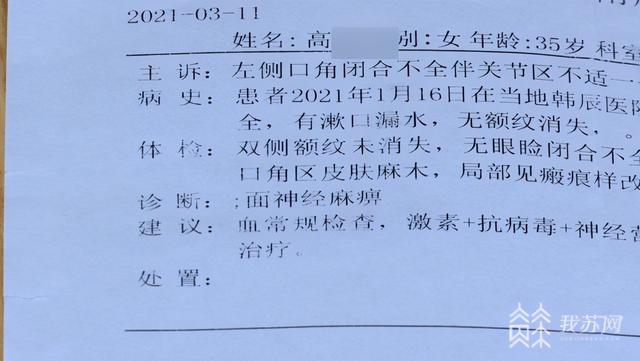 2021-03-11
姓名: 高 别: 女 年龄: 35岁 科室
主 诉: 左侧口角闭合不全伴关节区不适一
病 史: 患者2021年1月16日在当地韩辰医院
全, 有漱口漏水, 无额纹消失, 。
体 检: 双侧额纹未消失, 无眼睑闭合不全
口角区皮肤麻木, 局部见瘢痕样改
诊 断: ;面神经麻痹
建 议: 血常规检查, 激素+抗病毒+神经营
治疗。
处 置:
我苏网